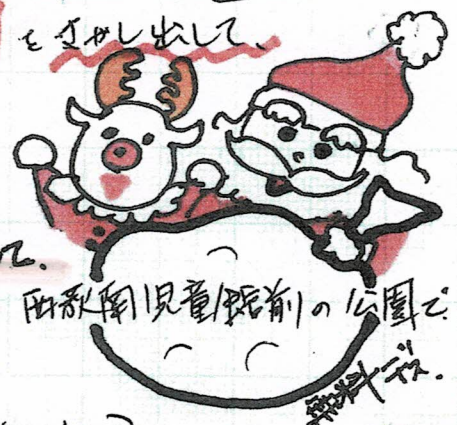 をさがし出して、
て.
西歌南児童館前の公園で
無料デス.